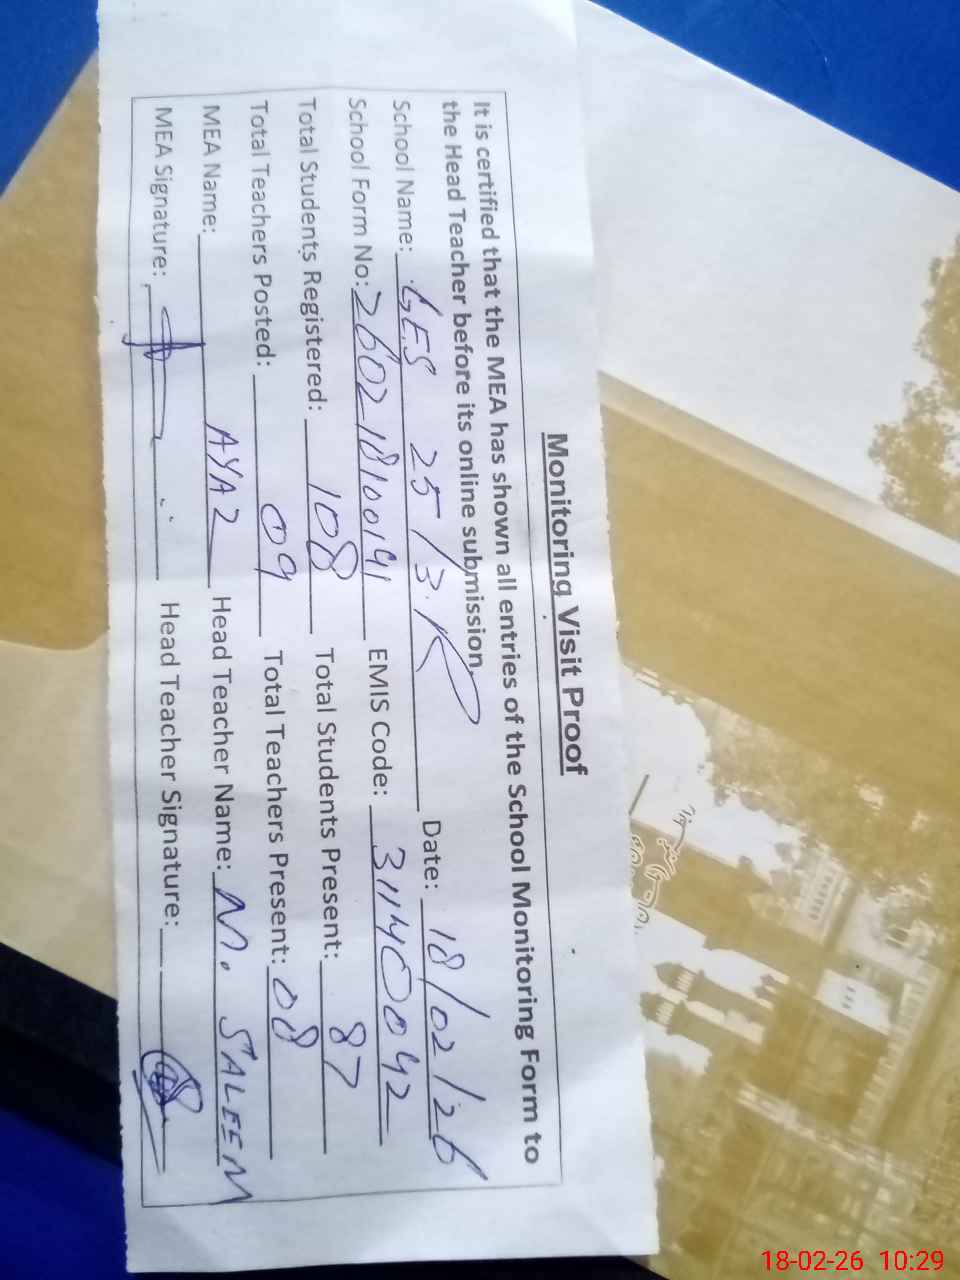 Monitoring Visit Proof
It is certified that the MEA has shown all entries of the School Monitoring Form to
the Head Teacher before its online submission.
School Name: GES 25/3.R Date: 18/02/26
School Form No: 26021810141 EMIS Code: 31140042
Total Students Registered: 108 Total Students Present: 87
Total Teachers Posted: 09 Total Teachers Present: 08
MEA Name: AYAZ Head Teacher Name: M. SALEEM
MEA Signature: Head Teacher Signature:
18-02-26 10:29